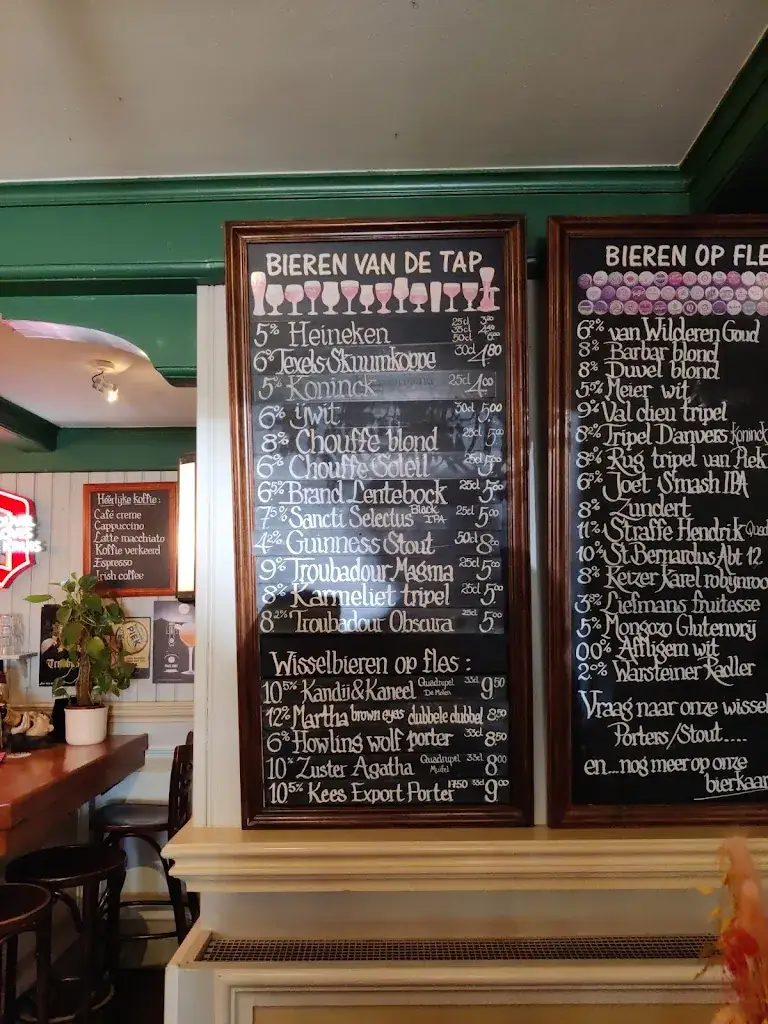 BIEREN VAN DE TAP
5% Heineken 25cl 35cl 50cl
6% Texels Skuumkoppe 30cl 4,80
5% Koninck 25cl 4,00
6% ijwit 30cl 5,00
8% Chouffe blond 25cl 5,00
6% Chouffe Soleil 25cl 5,00
6,5% Brand Lentebock 25cl 5,00
7,5% Sancti Selectus Black IPA 25cl 5,00
4,2% Guinness Stout 50cl 8,00
9% Troubadour Magma 25cl 5,00
8% Karmeliet tripel 25cl 5,00
8,2% Troubadour Obscura 25cl 5,00
Wisselbieren op fles:
10,5% Kandij&Kaneel Quadrupel De Molen 33cl 9,50
12% Martha brown eyes dubbele dubbel 8,50
6% Howling wolf porter 33cl 8,50
10% Zuster Agatha Quadrupel Muifel 33cl 8,00
10,5% Kees Export Porter 1750 33cl 9,00
BIEREN OP FLE
6,2% van Wilderen Goud
8% Barbar blond
8% Duvel blond
5,5% Meier wit
9% Val dieu tripel
8% Tripel D'anvers Koninck
8% Rug tripel van Piek
6% Joet Smash IPA
8% Zundert
11% Straffe Hendrik Quad
10% St Bernardus Abt 12
8% Keizer Karel robijnroo
3,8% Liefmans fruitesse
5% Mongozo Glutenvrij
0,0% Affligem wit
2,0% Warsteiner Radler
Vraag naar onze wissel
Porters/Stout....
en...nog meer op onze
bierkaar
Heerlijke koffie:
Café creme
Cappuccino
Latte macchiato
Koffie verkeerd
Espresso
Irish coffee
PIEK